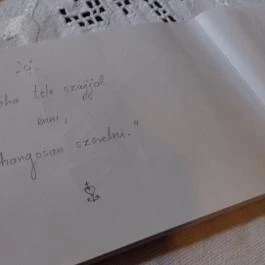 tele szájjal
enni,
hangosan szeretni."